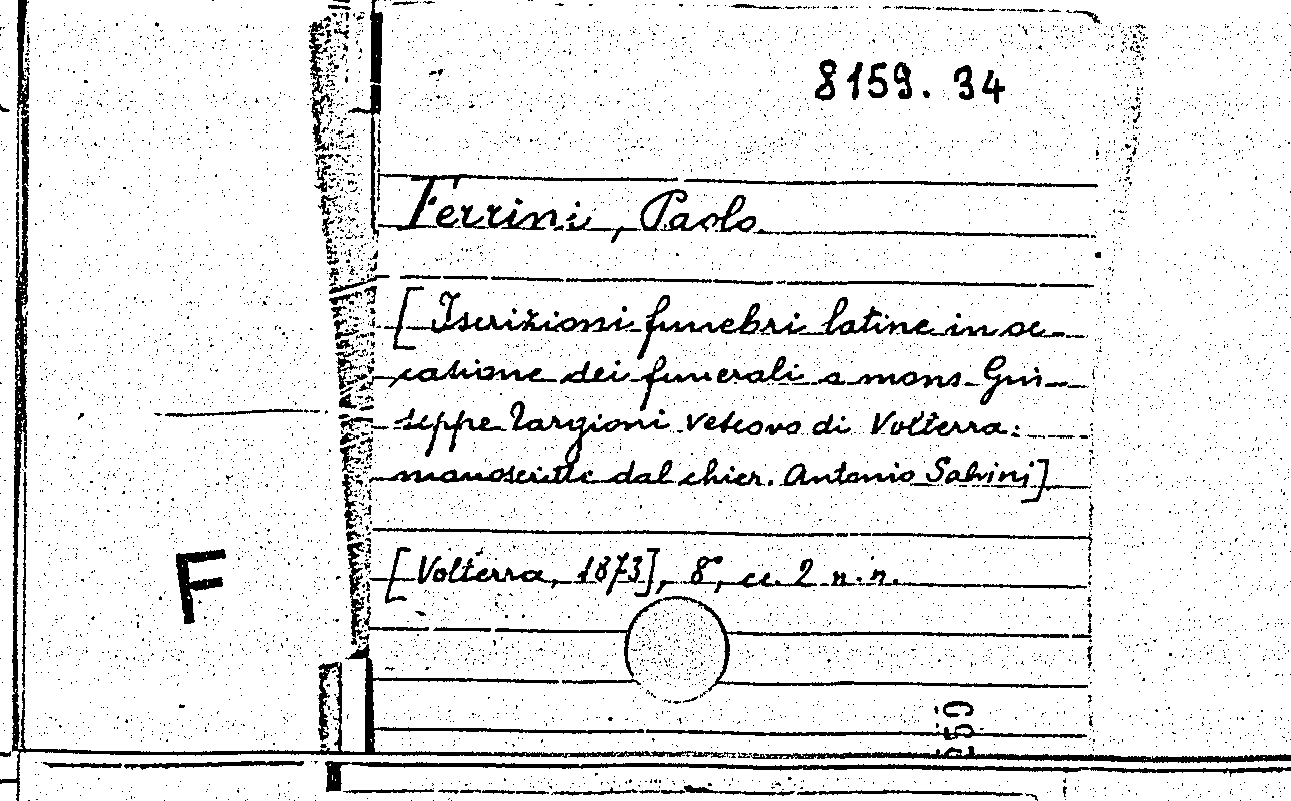 8159. 34
Ferrini, Paolo.
[Iscrizioni funebri latine in oc-
casione dei funerali a mons. Giu-
seppe Targioni vescovo di Volterra:
manoscritte dal chier. Antonio Salvini]
F
[Volterra, 1873], 8°, cc. 2 n.n.
259